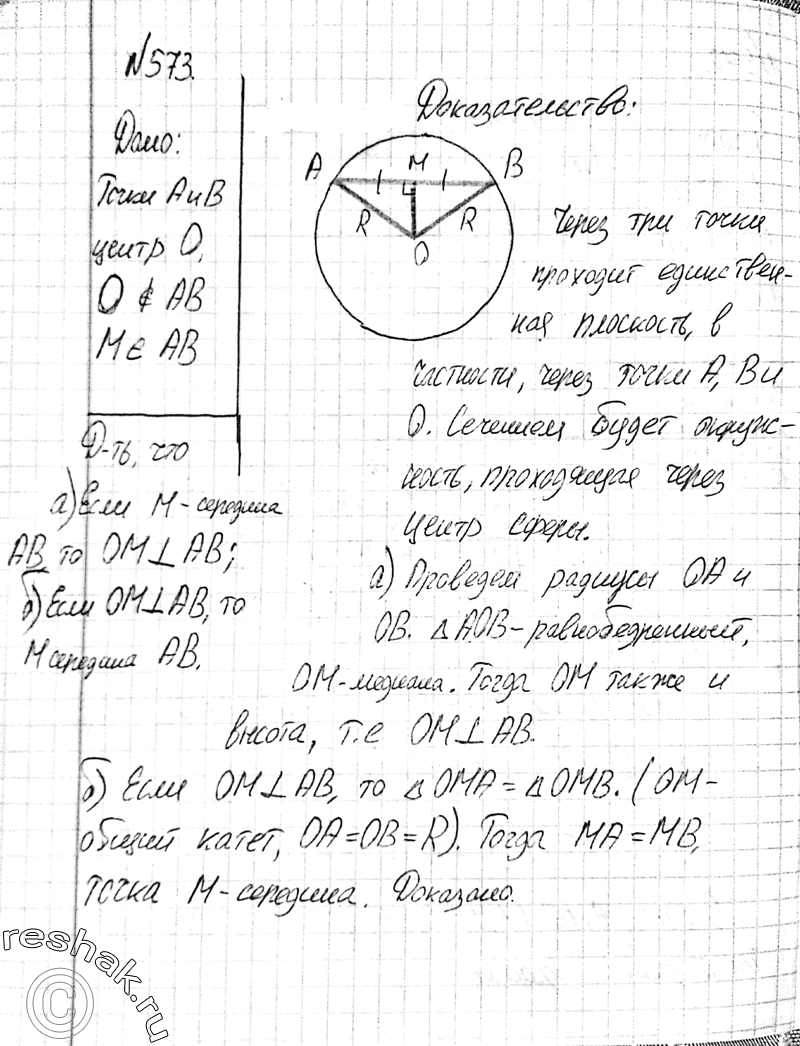 №573.
Дано:
Точки А и В
центр О,
О ∉ АВ
М ∈ АВ
Д-ть, что
а) Если М - середина
АВ, то ОМ⊥АВ;
б) Если ОМ⊥АВ, то
М середина АВ.
Доказательство:
А М В
R R
О
Через три точки
проходит единствен-
ная плоскость, в
частности, через точки А, В и
О. Сечением будет окруж-
ность, проходящая через
центр сферы.
а) Проведем радиусы ОА и
ОВ. △АОВ - равнобедренный,
ОМ - медиана. Тогда ОМ также и
высота, т.е ОМ⊥АВ.
б) Если ОМ⊥АВ, то △ОМА = △ОМВ. (ОМ -
общий катет, ОА = ОВ = R). Тогда МА = МВ,
точка М - середина. Доказано.
reshak.ru
©